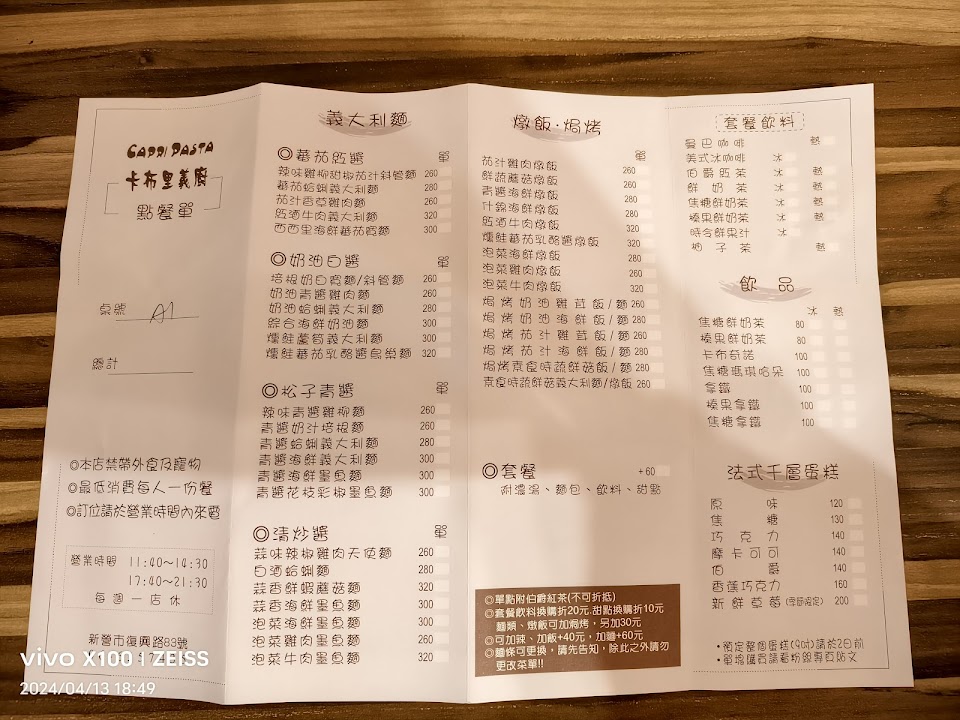 CAPRI PASTA
卡布里義廚
點餐單
桌號 A1
總計
◎本店禁帶外食及寵物
◎最低消費每人一份餐
◎訂位請於營業時間內來電
營業時間 11:40~14:30
17:40~21:30
每週一店休
新營市復興路89號
義大利麵
◎蕃茄紅醬 單
辣味雞柳甜椒茄汁斜管麵 260
蕃茄蛤蜊義大利麵 280
茄汁香草雞肉麵 260
紅酒牛肉義大利麵 320
西西里海鮮蕃茄寬麵 300
◎奶油白醬 單
培根奶白寬麵/斜管麵 260
奶油青醬雞肉麵 260
奶油蛤蜊義大利麵 280
綜合海鮮奶油麵 300
燻鮭蘆筍義大利麵 300
燻鮭蕃茄乳酪醬鳥巢麵 320
◎松子青醬 單
辣味青醬雞柳麵 260
青醬奶汁培根麵 260
青醬蛤蜊義大利麵 280
青醬海鮮義大利麵 300
青醬海鮮墨魚麵 300
青醬花枝彩椒墨魚麵 300
◎清炒醬 單
蒜味辣椒雞肉天使麵 260
白酒蛤蜊麵 280
蒜香鮮蝦蘑菇麵 320
蒜香海鮮墨魚麵 300
泡菜海鮮墨魚麵 300
泡菜雞肉墨魚麵 260
泡菜牛肉墨魚麵 320
燉飯·焗烤
單
茄汁雞肉燉飯 260
鮮蔬蘑菇燉飯 260
青醬海鮮燉飯 280
什錦海鮮燉飯 280
紅酒牛肉燉飯 320
燻鮭蕃茄乳酪醬燉飯 320
泡菜海鮮燉飯 280
泡菜雞肉燉飯 260
泡菜牛肉燉飯 320
焗烤奶油雞茸飯/麵 260
焗烤奶油海鮮飯/麵 280
焗烤茄汁雞茸飯/麵 260
焗烤茄汁海鮮飯/麵 280
焗烤素食時蔬鮮菇飯/麵 260
素食時蔬鮮菇義大利麵/燉飯 260
◎套餐 +60
附濃湯、麵包、飲料、甜點
◎單點附伯爵紅茶(不可折抵)
◎套餐飲料換購折20元.甜點換購折10元
麵類、燉飯可加焗烤，另加30元
◎可加辣、加飯+40元，加麵+60元
◎麵條可更換，請先告知，除此之外請勿
更改菜單!!
套餐飲料
曼巴咖啡 熱
美式冰咖啡 冰
伯爵紅茶 冰 熱
鮮奶茶 冰 熱
焦糖鮮奶茶 冰 熱
榛果鮮奶茶 冰 熱
時令鮮果汁 冰
柚子茶 熱
飲品
冰 熱
焦糖鮮奶茶 80
榛果鮮奶茶 80
卡布奇諾 100
焦糖瑪琪哈朵 100
拿鐵 100
榛果拿鐵 100
焦糖拿鐵 100
法式千層蛋糕
原味 120
焦糖 130
巧克力 140
摩卡可可 140
伯爵 140
香蕉巧克力 160
新鮮草莓(季節限定) 200
•預定整個蛋糕(9吋)請於2日前
•單塊購買請看粉絲專頁貼文
vivo X100 | ZEISS
2024/04/13 18:49